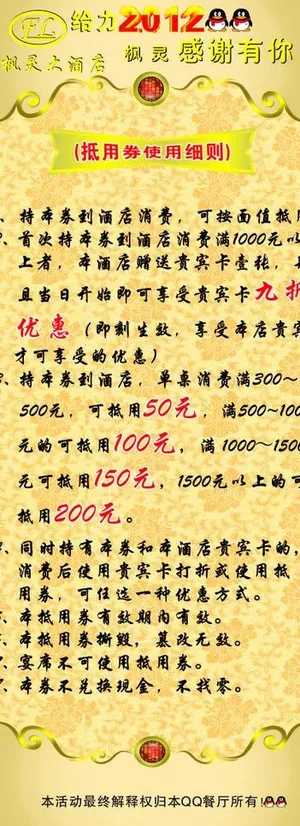 FL 给力2012
枫灵大酒店 枫灵 感谢有你
(抵用券使用细则)
、持本券到酒店消费，可按面值抵用
、首次持本券到酒店消费满1000元以
上者，本酒店赠送贵宾卡壹张，
且当日开始即可享受贵宾卡九折
优惠（即刻生效，享受本店贵宾
才可享受的优惠）
、持本券到酒店，单桌消费满300～
500元，可抵用50元，满500~100
元的可抵用100元，满1000～1500
元可抵用150元，1500元以上的可
抵用200元。
、同时持有本券和本酒店贵宾卡的，
消费后使用贵宾卡打折或使用抵
用券，可任选一种优惠方式。
、本抵用券有效期内有效。
、本抵用券撕毁，篡改无效。
、宴席不可使用抵用券。
、本券不兑换现金，不找零。
本活动最终解释权归本QQ餐厅所有!